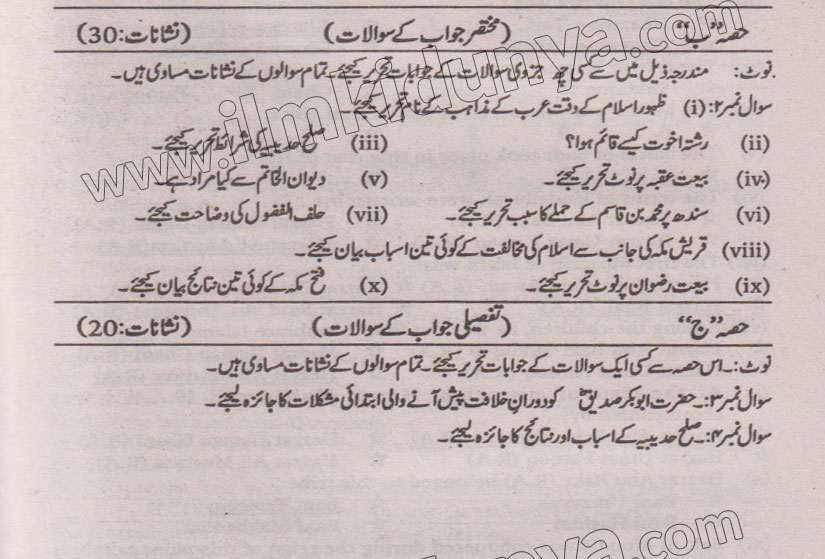 حصہ ”ب“ (مختصر جواب کے سوالات) (نشانات:30)
نوٹ: مندرجہ ذیل میں سے کسی چھ جزوی سوالات کے جوابات تحریر کیجئے۔ تمام سوالوں کے نشانات مساوی ہیں۔
سوال نمبر۲: (i) ظہور اسلام کے وقت عرب کے مذاہب کے نام تحریر کیجئے۔
(ii) رشتہ اخوت کیسے قائم ہوا؟ (iii) صلح حدیبیہ کی شرائط تحریر کیجئے۔
(iv) بیعت عقبہ پر نوٹ تحریر کیجئے۔ (v) دیوان الخاتم سے کیا مراد ہے۔
(vi) سندھ پر محمد بن قاسم کے حملے کا سبب تحریر کیجئے۔ (vii) حلف الفضول کی وضاحت کیجئے۔
(viii) قریش مکہ کی جانب سے اسلام کی مخالفت کے کوئی تین اسباب بیان کیجئے۔
(ix) بیعت رضوان پر نوٹ تحریر کیجئے۔ (x) فتح مکہ کے کوئی تین نتائج بیان کیجئے۔
حصہ ”ج“ (تفصیلی جواب کے سوالات) (نشانات:20)
نوٹ:۔ اس حصہ سے کسی ایک سوالات کے جوابات تحریر کیجئے۔ تمام سوالوں کے نشانات مساوی ہیں۔
سوال نمبر۳:۔ حضرت ابوبکر صدیقؓ کو دوران خلافت پیش آنے والی ابتدائی مشکلات کا جائزہ لیجئے۔
سوال نمبر۴:۔ صلح حدیبیہ کے اسباب اور نتائج کا جائزہ لیجئے۔
www.ilmkidunya.com